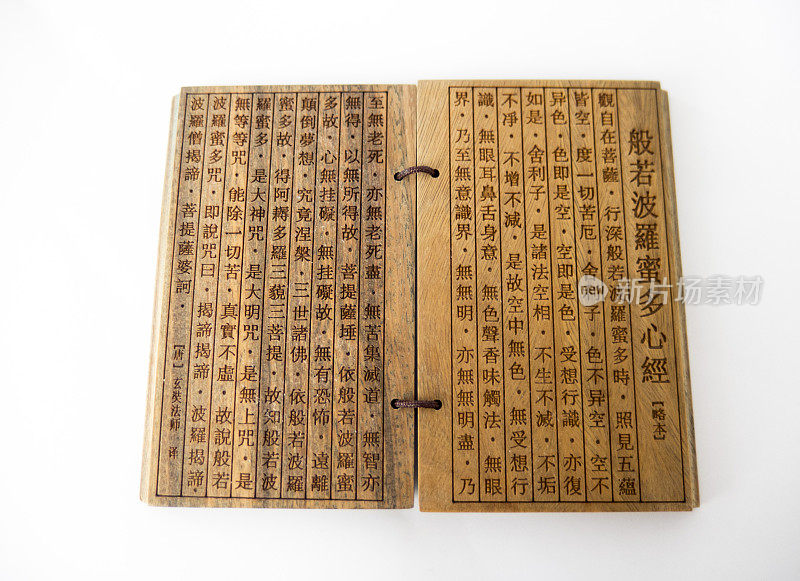 般若波羅蜜多心經【略本】
觀自在菩薩·行深般若波羅蜜多時·照見五蘊
皆空·度一切苦厄·舍子·色不异空·空不
异色·色即是空·空即是色·受想行識·亦復
如是·舍利子·是諸法空相·不生不滅·不垢
不净·不增不減·是故空中無色·無受想行
識·無眼耳鼻舌身意·無色聲香味觸法·無眼
界·乃至無意識界·無無明·亦無無明盡·乃
至無老死·亦無老死盡·無苦集滅道·無智亦
無得·以無所得故·菩提薩埵·依般若波羅蜜
多故·心無挂礙·無挂礙故·無有恐怖·遠離
顛倒夢想·究竟涅槃·三世諸佛·依般若波羅
蜜多故·得阿耨多羅三藐三菩提·故知般若波
羅蜜多·是大神咒·是大明咒·是無上咒·是
無等等咒·能除一切苦·真實不虛·故說般若
波羅蜜多咒·即說咒曰·揭諦揭諦·波羅揭諦·
波羅僧揭諦·菩提薩婆訶·【唐】玄奘法師 译
new 新图视觉